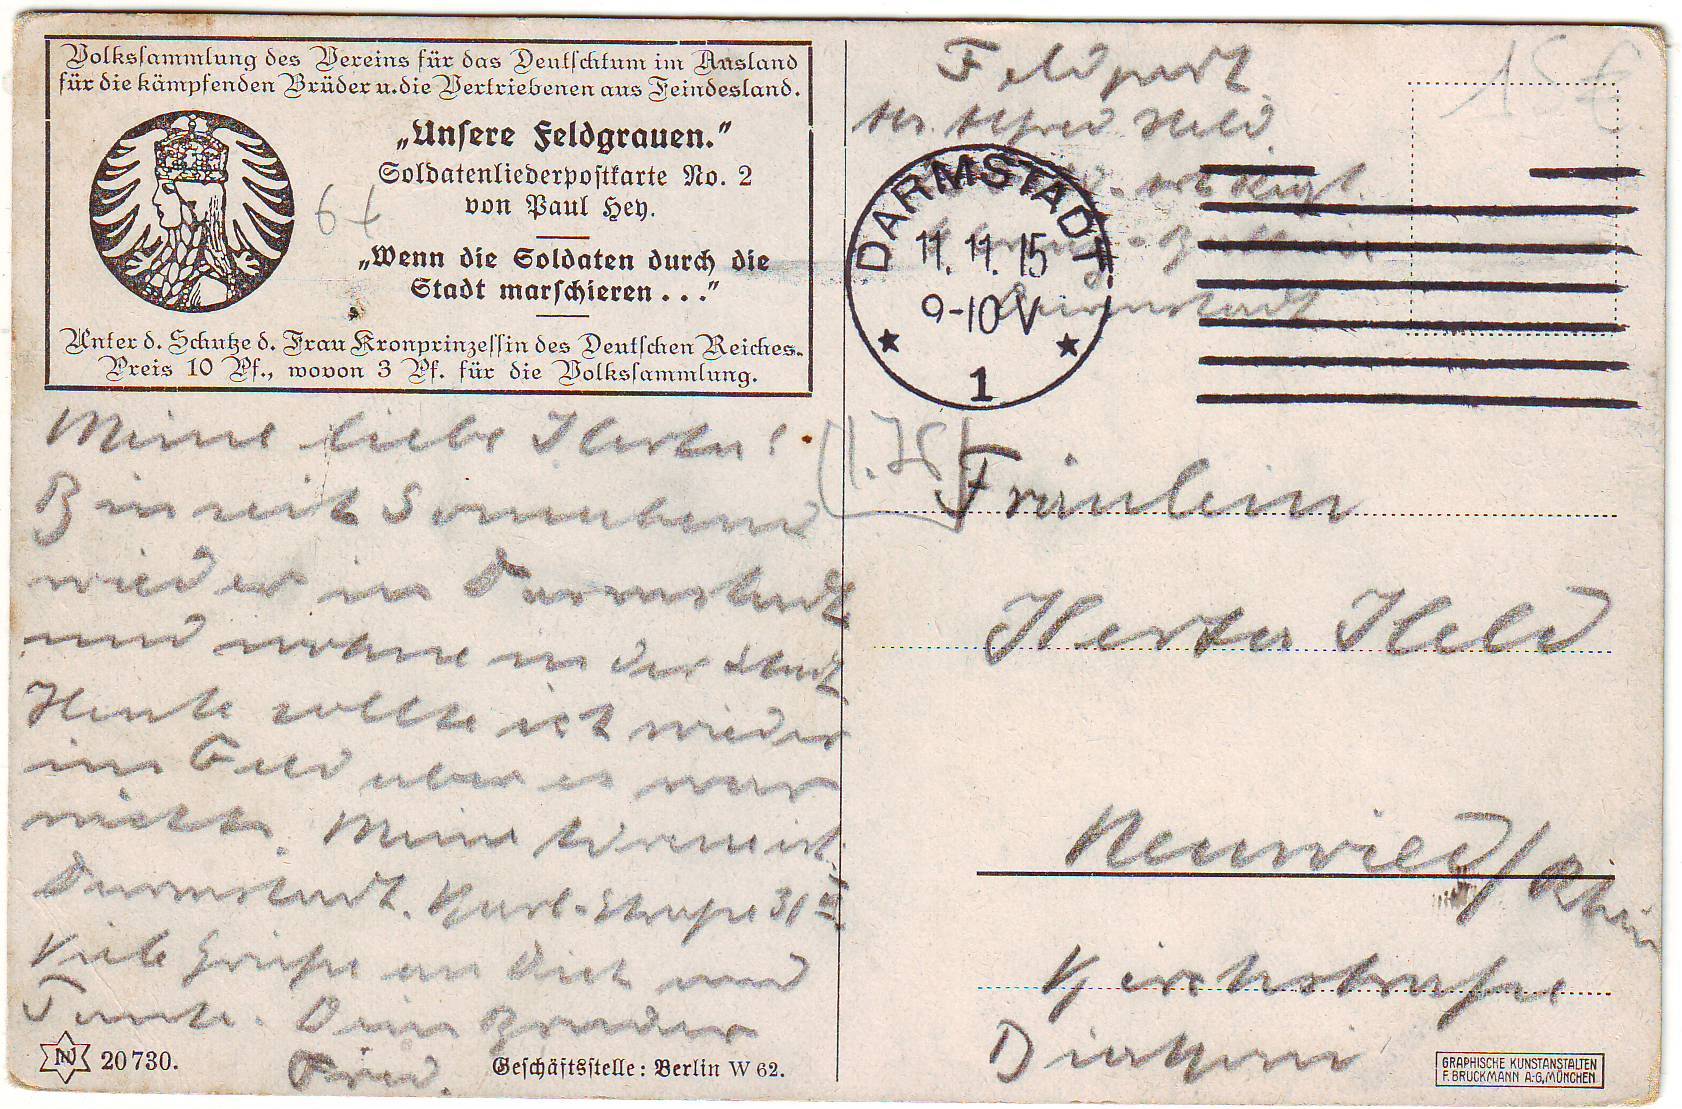 Volkssammlung des Vereins für das Deutschtum im Ausland
für die kämpfenden Brüder u. die Vertriebenen aus Feindesland.
„Unsere Feldgrauen."
Soldatenliederpostkarte No. 2
von Paul Hey.
„Wenn die Soldaten durch die
Stadt marschieren . . ."
Unter d. Schutze d. Frau Kronprinzessin des Deutschen Reiches.
Preis 10 Pf., wovon 3 Pf. für die Volkssammlung.
6
Meine liebe Herta!
Bin seit Sonnabend
wieder in Darmstadt
und wohne in der Stadt
Heute sollte ich wieder
ins Feld aber es war
nichts. Meine ist
Darmstadt. Karl-Straße 31
Viele Grüße an Dich und
Tante. Dein Bruder
Fred.
N 20730.
Geschäftsstelle: Berlin W 62.
15 €
Feldpost
Alfred Held
Darmstadt
DARMSTADT
11. 11. 15
9-10 V
1
(1.75)
Fräulein
Herta Held
Neuwied/Rhein
Kirchstraße
GRAPHISCHE KUNSTANSTALTEN
F. BRUCKMANN A.-G., MÜNCHEN